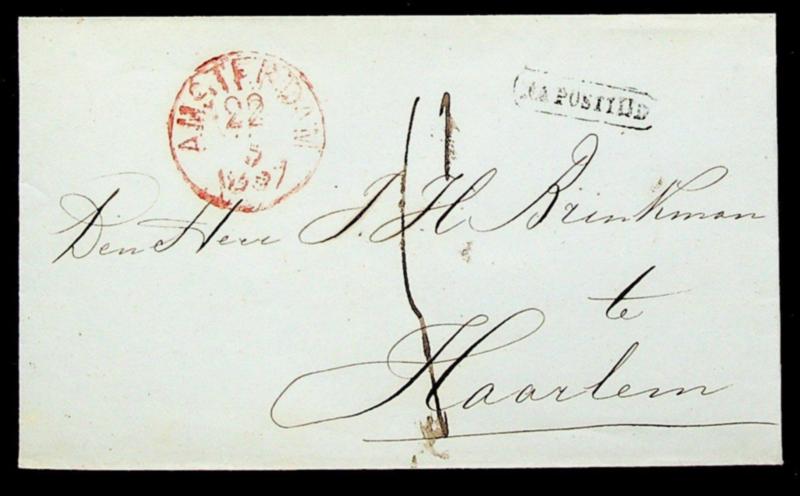 AMSTERDAM
22
5
1857
NA POSTTIJD
Den Heer J. H. Brinkman
te
Haarlem